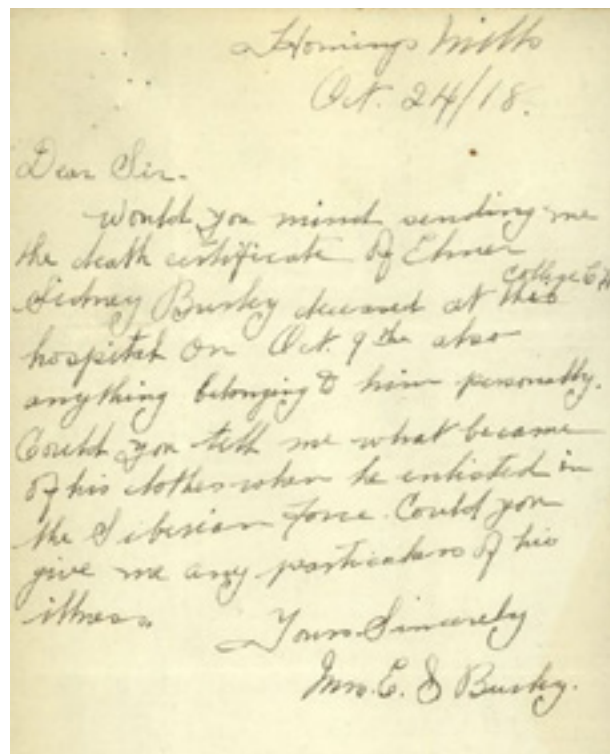 Hornings Mills
Oct. 24/18.
Dear Sir.
Would you mind sending me
the death certificate of Elmer
College
Sidney Burley deceased at the
hospital on Oct. 9th also
anything belonging to him personally.
Could you tell me what became
of his clothes when he enlisted in
the Siberian Force. Could you
give me any particulars of his
illness.
Yours Sincerely
Mrs. E. S Burley.